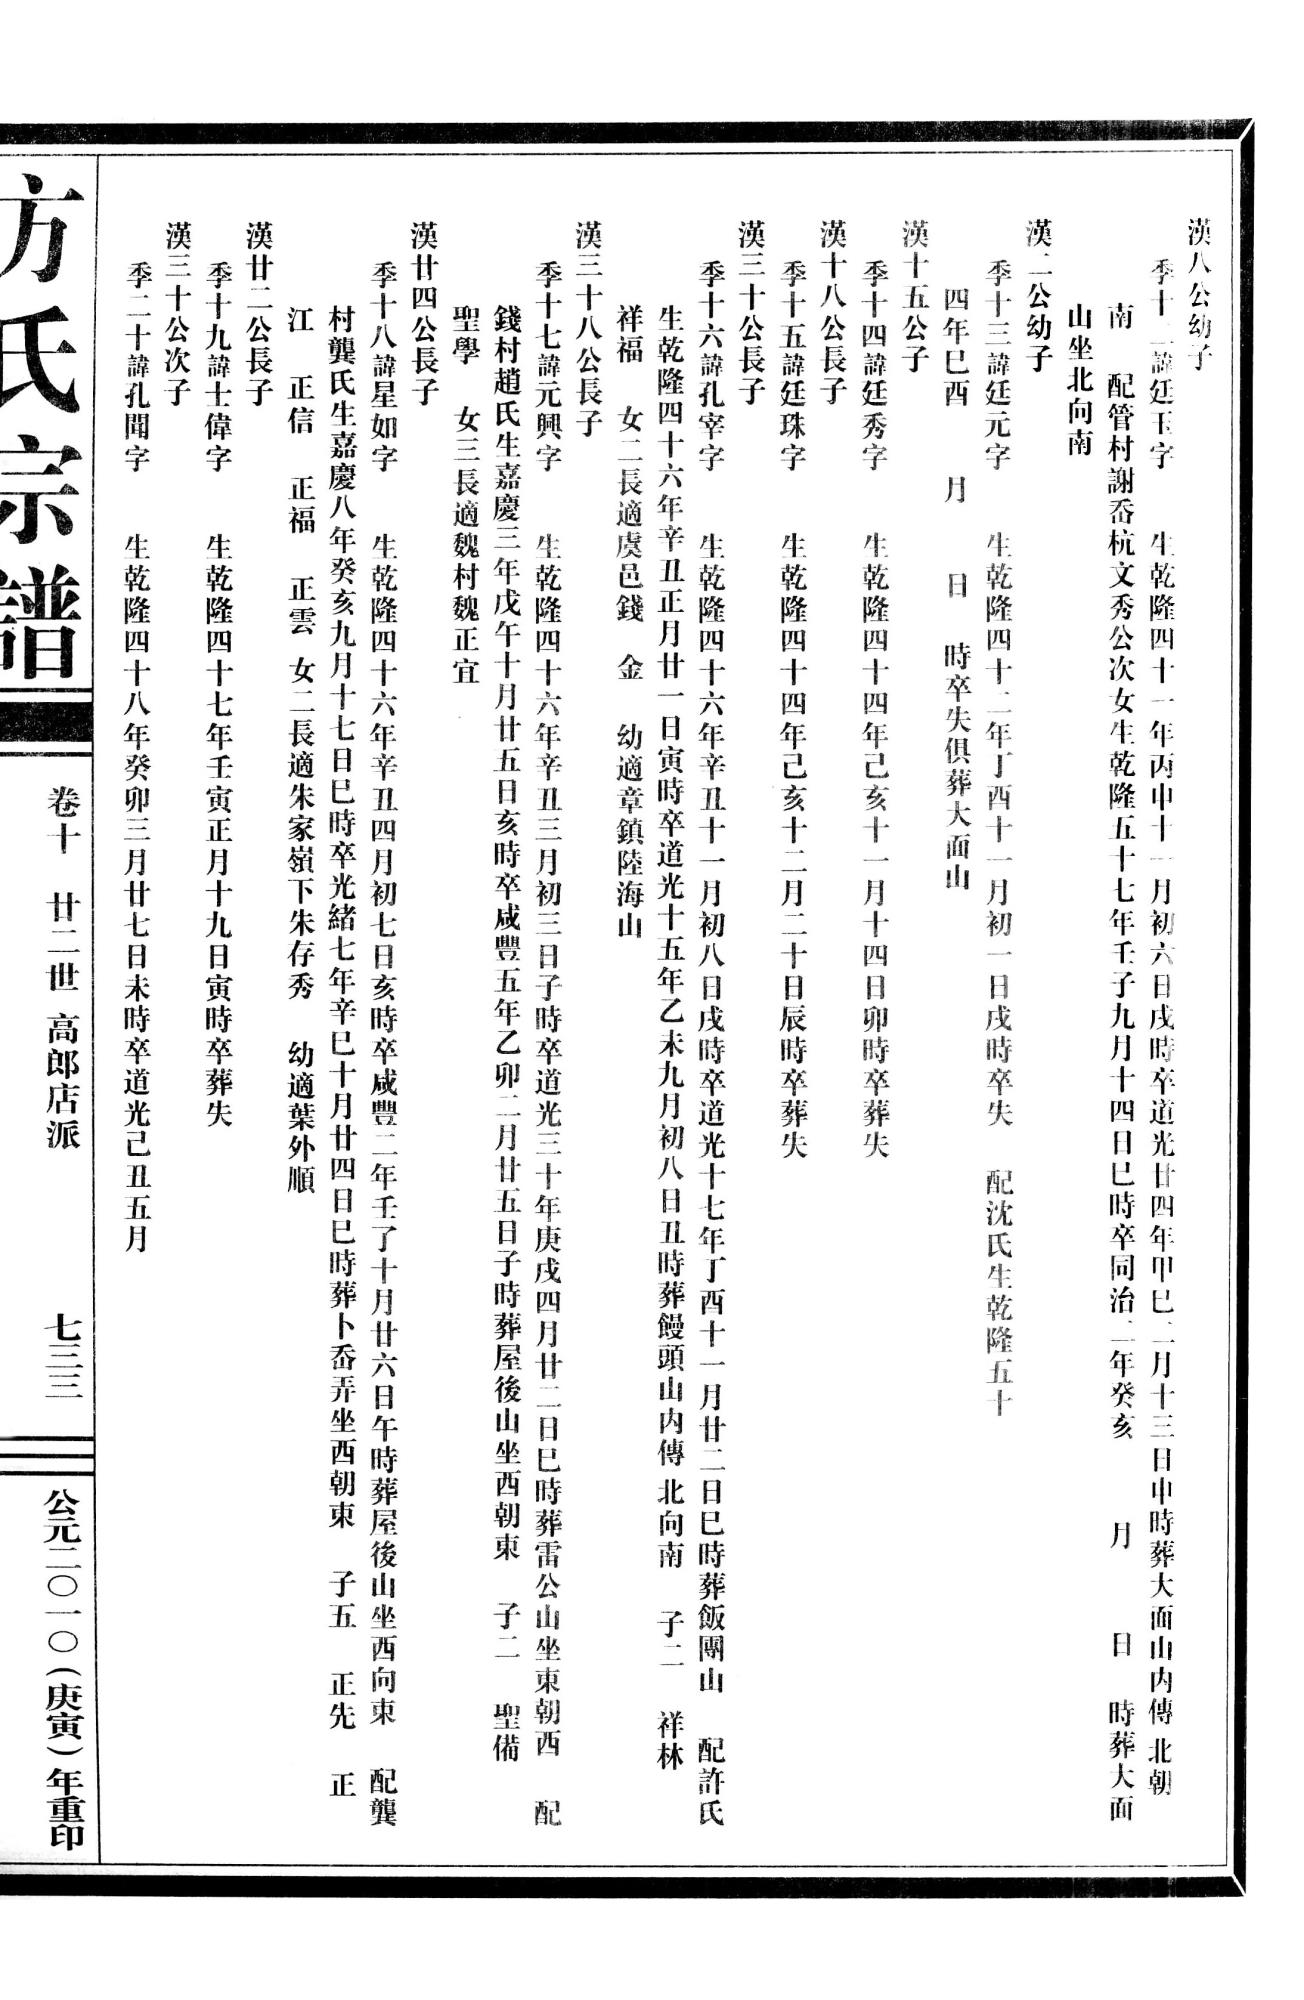 漢八公幼子
季十二諱廷玉字 生乾隆四十一年丙申十一月初六日戌時卒道光廿四年甲巳二月十三日申時葬大面山內傳 北朝
南 配管村謝岙杭文秀公次女生乾隆五十七年壬子九月十四日巳時卒同治二年癸亥 月 日 時葬大面
山坐北向南
漢二公幼子
季十三諱廷元字 生乾隆四十二年丁酉十一月初一日戌時卒失 配沈氏生乾隆五十
四年巳酉 月 日 時卒失俱葬大面山
漢十五公子
季十四諱廷秀字 生乾隆四十四年己亥十一月十四日卯時卒葬失
漢十八公長子
季十五諱廷珠字 生乾隆四十四年己亥十二月二十日辰時卒葬失
漢三十公長子
季十六諱孔宰字 生乾隆四十六年辛丑十一月初八日戌時卒道光十七年丁酉十一月廿二日巳時葬飯團山 配許氏
生乾隆四十六年辛丑正月廿一日寅時卒道光十五年乙未九月初八日丑時葬饅頭山內傳 北向南 子二 祥林
祥福 女二長適虞邑錢 金 幼適章鎮陸海山
漢三十八公長子
季十七諱元興字 生乾隆四十六年辛丑三月初三日子時卒道光三十年庚戌四月廿二日巳時葬雷公山坐東朝西 配
錢村趙氏生嘉慶三年戊午十月廿五日亥時卒咸豐五年乙卯二月廿五日子時葬屋後山坐西朝東 子二 聖備
聖學 女三長適魏村魏正宜
漢廿四公長子
季十八諱星如字 生乾隆四十六年辛丑四月初七日亥時卒咸豐二年壬子十月廿六日午時葬屋後山坐西向東 配龔
村龔氏生嘉慶八年癸亥九月十七日巳時卒光緒七年辛巳十月廿四日巳時葬卜岙弄坐西朝東 子五 正先 正
江 正信 正福 正雲 女二長適朱家嶺下朱存秀 幼適葉外順
漢廿二公長子
季十九諱士偉字 生乾隆四十七年壬寅正月十九日寅時卒葬失
漢三十公次子
季二十諱孔聞字 生乾隆四十八年癸卯三月廿七日未時卒道光己丑五月
方氏宗譜
卷十 廿二世 高郎店派 七三三
公元二〇一〇(庚寅)年重印